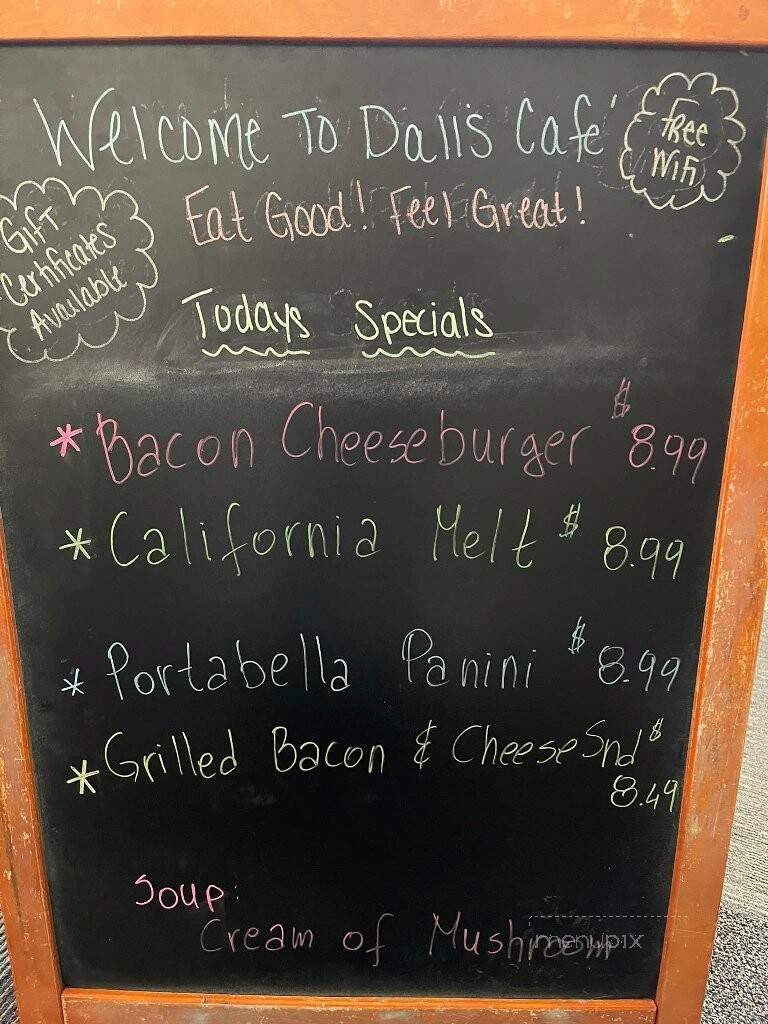 Welcome To Dall's Café
Free
Wifi
Eat Good! Feel Great!
Gift
Certificates
Available
Todays Specials
* Bacon Cheeseburger $8.99
* California Melt $8.99
* Portabella Panini $8.99
* Grilled Bacon & Cheese Snd $
8.49
Soup:
Cream of Mushroom
menupix